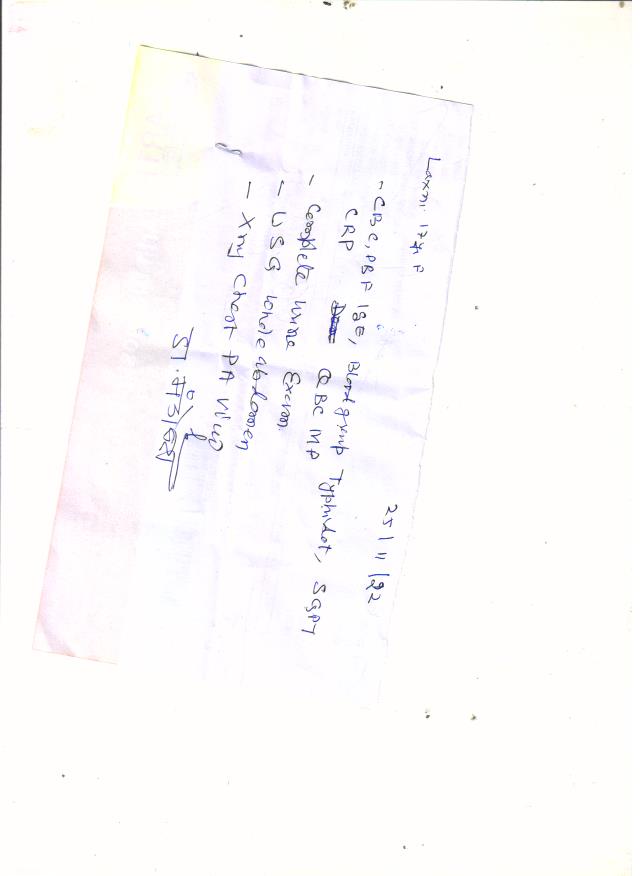 Laxmi 17y, F
25/11/22
- CBC, PBF, IgE, Blood group Typhidot, SGPT
CRP QBC MP
- Complete Urine Exam
- USG whole abdomen
- Xray Chest PA View